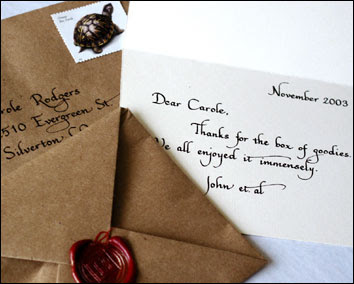 arole Rodgers
510 Evergreen St
Silverton CO
November 2003
Dear Carole,
Thanks for the box of goodies.
We all enjoyed it immensely.
John et.al